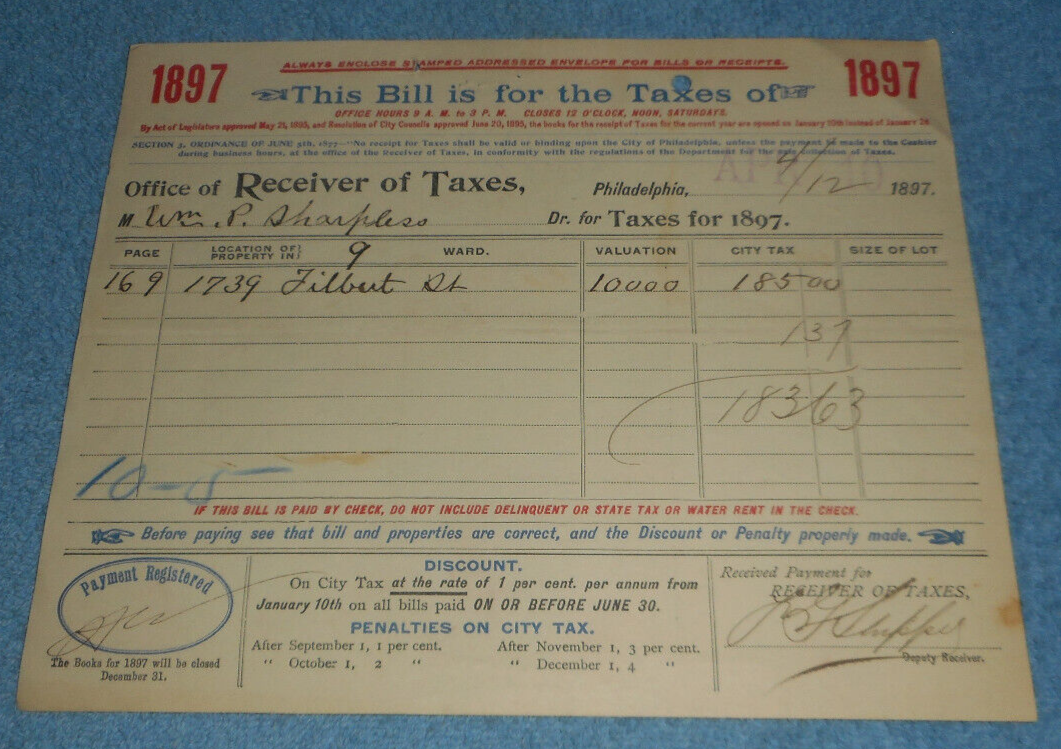 ALWAYS ENCLOSE STAMPED ADDRESSED ENVELOPE FOR BILLS OR RECEIPTS.
1897 This Bill is for the Taxes of 1897
OFFICE HOURS 9 A. M. to 3 P. M. CLOSES 12 O'CLOCK, NOON, SATURDAYS.
By Act of Legislature approved May 21, 1895, and Resolution of City Councils approved June 20, 1895, the books for the receipt of Taxes for the current year are opened on January 10th instead of January 24
SECTION 3, ORDINANCE OF JUNE 5th, 1877—"No receipt for Taxes shall be valid or binding upon the City of Philadelphia, unless the payment is made to the Cashier
during business hours, at the office of the Receiver of Taxes, in conformity with the regulations of the Department for the safe collection of Taxes.
Office of Receiver of Taxes, Philadelphia, 4/12 1897.
M Wm. P. Sharpless Dr. for Taxes for 1897.
PAGE LOCATION OF PROPERTY IN 9 WARD. VALUATION CITY TAX SIZE OF LOT
169 1739 Filbert St 10000 185 00
1 37
183 63
10-5
IF THIS BILL IS PAID BY CHECK, DO NOT INCLUDE DELINQUENT OR STATE TAX OR WATER RENT IN THE CHECK.
Before paying see that bill and properties are correct, and the Discount or Penalty properly made.
Payment Registered
The Books for 1897 will be closed
December 31.
DISCOUNT.
On City Tax at the rate of 1 per cent. per annum from
January 10th on all bills paid ON OR BEFORE JUNE 30.
PENALTIES ON CITY TAX.
After September 1, 1 per cent. After November 1, 3 per cent.
" October 1, 2 " " December 1, 4 "
Received Payment for
RECEIVER OF TAXES,
Deputy Receiver.